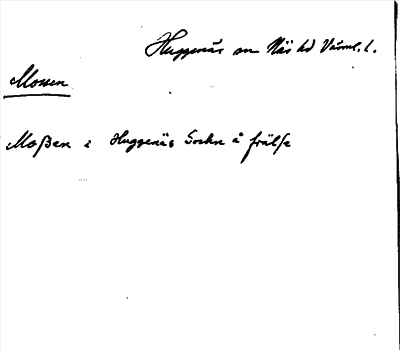 Huggenäs sn Näs hd Värml. l.
Mossen
Moßen i Huggenäs Sockn å frälse